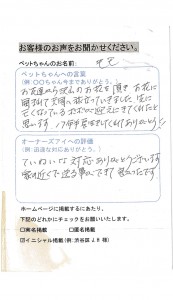 お客様のお声をお聞かせください。
ペットちゃんのお名前:
ペットちゃんへの言葉
(例:〇〇ちゃん今までありがとう。)
お友達から沢山のお花を頂き お花に
囲まれて天国へ旅立っていきました 先に
亡くなっている
思います。17年半 ありがとう
オーナーズアイへの評価
(例:迅速な対応ありがとう。)
ていねいな対応ありがとうございます
家の近くで送る事ができて良かったです
ホームページに掲載するにあたり、
下記のどれかにチェックをお願いいたします。
□実名掲載 □匿名掲載
☑イニシャル掲載(例:渋谷区 J.B 様)